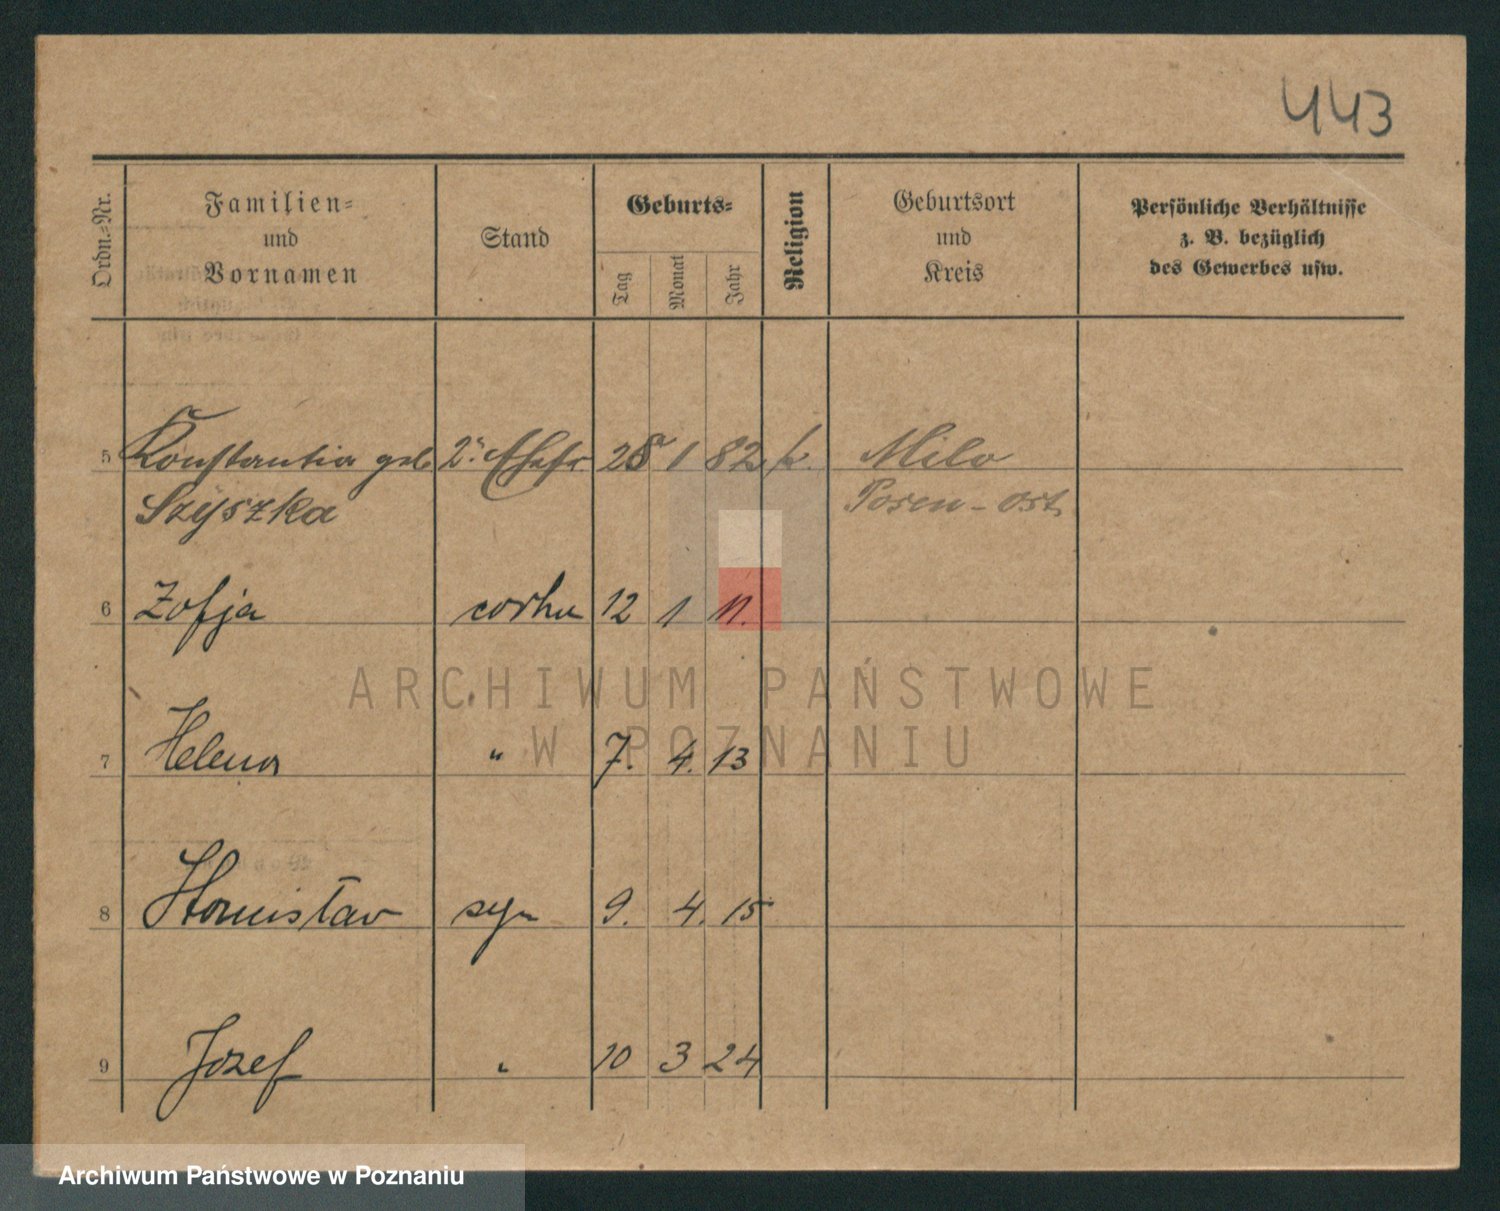 443
Ordn.-Nr.
Familien-
und
Vornamen
Stand
Geburts-
Tag
Monat
Jahr
Religion
Geburtsort
und
Kreis
Persönliche Verhältnisse
z. B. bezüglich
des Gewerbes usw.
5 Konstantia geb. 2. Ehefr 28 1 82 k. Milo
Szyszka Posen-Ost
6 Zofja corka 12 1 11.
ARCHIWUM PAŃSTWOWE
W POZNANIU
7 Helena " 7. 4. 13
8 Stanisław syn 9. 4. 15
9 Jozef " 10 3 24
Archiwum Państwowe w Poznaniu